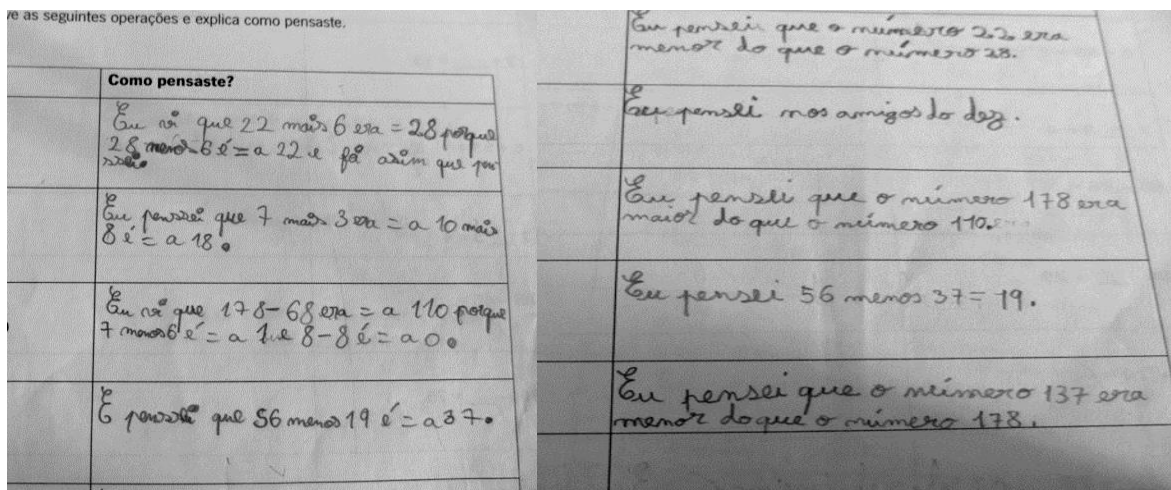 ve as seguintes operações e explica como pensaste.
Como pensaste?
Eu vi que 22 mais 6 era = 28 porque
28 menos 6 é = a 22 e fâ asim que pen
ssei.
Eu penssei que 7 mais 3 era = a 10 mais
8 é = a 18.
Eu vi que 178-68 era = a 110 porque
7 menos 6 é = a 1 e 8-8 é = a 0.
E penssei que 56 menos 19 é = a 37.
Eu pensei que o número 22 era
menor do que o número 28.
Eu pensei nos amigos do dez.
Eu pensei que o número 178 era
maior do que o número 110.
Eu pensei 56 menos 37 = 19.
Eu pensei que o número 137 era
menor do que o número 178.